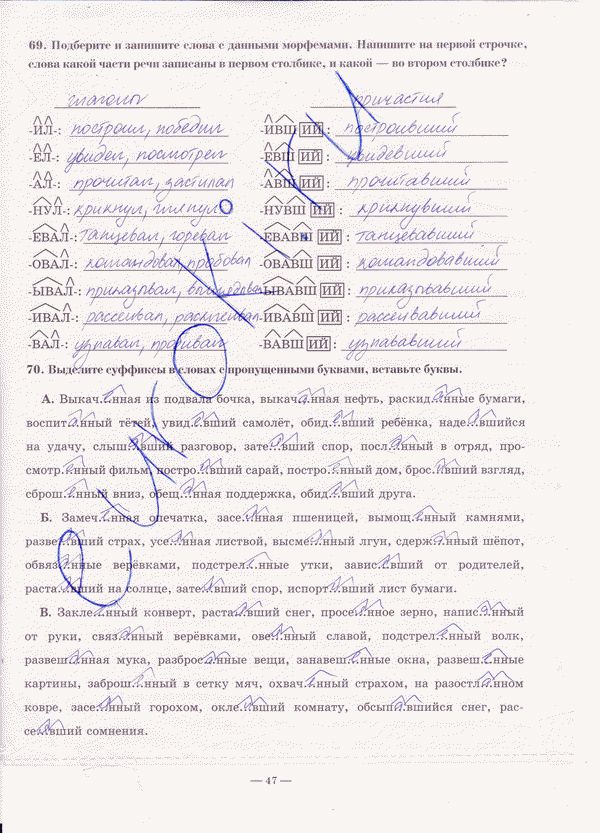 69. Подберите и запишите слова с данными морфемами. Напишите на первой строчке,
слова какой части речи записаны в первом столбике, и какой — во втором столбике?
глаголы причастия
-ИЛ-: построил, победил -ИВШ ИЙ : построивший
-ЕЛ-: увидел, посмотрел -ЕВШ ИЙ : увидевший
-АЛ-: прочитал, застилал -АВШ ИЙ : прочитавший
-НУЛ-: крикнул, глянул -НУВШ ИЙ : крикнувший
-ЕВАЛ-: танцевал, горевал -ЕВАВШ ИЙ : танцевавший
-ОВАЛ-: командовал, пробовал -ОВАВШ ИЙ : командовавший
-ЫВАЛ-: приказывал, -ЫВАВШ ИЙ : приказывавший
-ИВАЛ-: рассеивал, расклеивал -ИВАВШ ИЙ : рассеивавший
-ВАЛ-: узнавал, -ВАВШ ИЙ : узнававший
70. Выделите суффиксы в словах с пропущенными буквами, вставьте буквы.
А. Выкач...нная из подвала бочка, выкач...нная нефть, раскид...нные бумаги,
воспит...нный тётей, увид...вший самолёт, обид...вший ребёнка, наде...вшийся
на удачу, слыш...вший разговор, зате...вший спор, посл...нный в отряд, про-
смотр...нный фильм, постро...вший сарай, постро...нный дом, брос...вший взгляд,
сброш...нный вниз, обещ...нная поддержка, обид...вший друга.
Б. Замеч...нная опечатка, засе...нная пшеницей, вымощ...нный камнями,
разве...вший страх, усе...нная листвой, высме...нный лгун, сдерж...нный шёпот,
обвяз...нные верёвками, подстрел...нные утки, завис...вший от родителей,
раста...вший на солнце, зате...вший спор, испорт...вший лист бумаги.
В. Закле...нный конверт, раста...вший снег, просе...нное зерно, напис...нный
от руки, связ...нный верёвками, ове...нный славой, подстрел...нный волк,
развеш...нная мука, разброс...нные вещи, занавеш...нные окна, развеш...нные
картины, заброш...нный в сетку мяч, охвач...нный страхом, на разостл...нном
ковре, засе...нный горохом, окле...вший комнату, обсып...вшийся снег, рас-
се...вший сомнения.
— 47 —